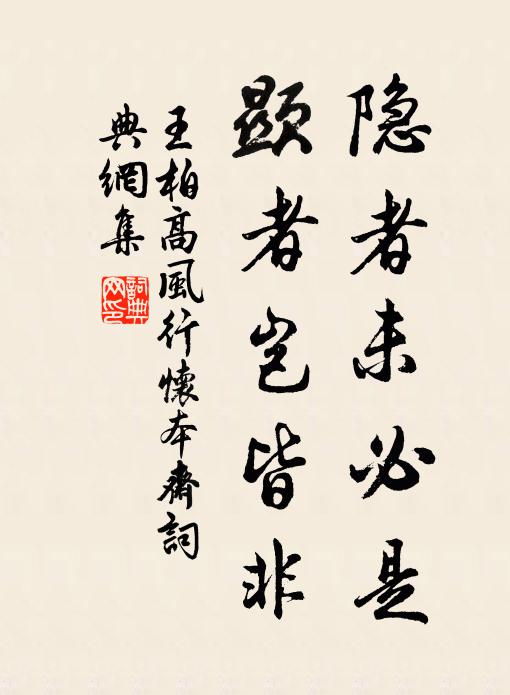 隐者未必是
顯者岂皆非
王柏高風行懷本齋詞
典網集
詞典
网印